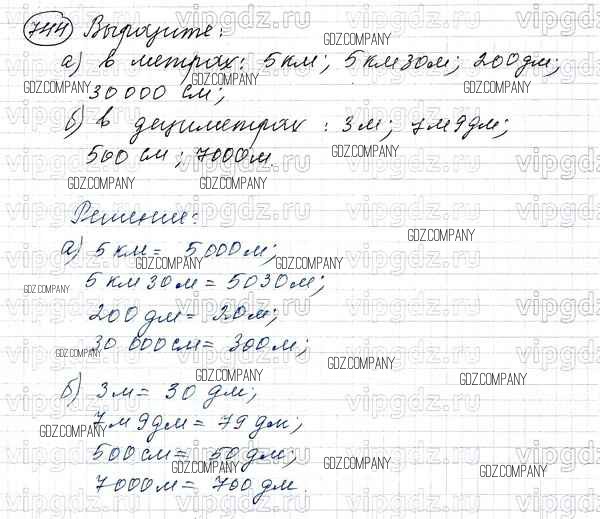 744 Выразите:
а) в метрах: 5 км; 5 км 30 м; 200 дм;
30 000 см;
б) в дециметрах: 3 м; 7 м 9 дм;
500 см; 7000 м.
Решение:
а) 5 км = 5000 м;
5 км 30 м = 5030 м;
200 дм = 20 м;
30 000 см = 300 м;
б) 3 м = 30 дм;
7 м 9 дм = 79 дм;
500 см = 50 дм;
7000 м = 700 дм.